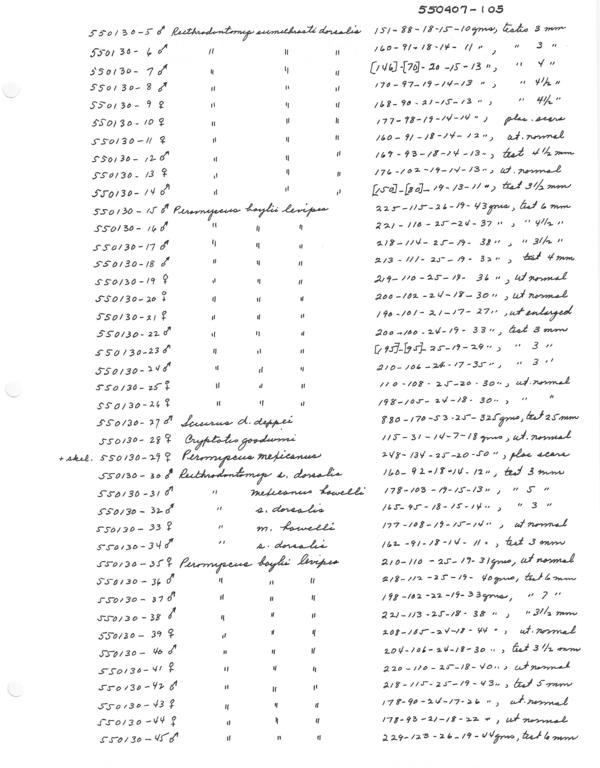 550407-105
550130-5 ♂ Reithrodontomys sumichrasti dorsalis 151-88-18-15-10 gms, testis 3 mm
550130-6 ♂ " " " 160-91-18-14-11 ", " 3 "
550130-7 ♂ " " " [146]-[70]-20-15-13 ", " 4 "
550130-8 ♂ " " " 170-97-19-14-13 ", " 4½ "
550130-9 ♀ " " " 168-90-21-15-13 ", " 4½ "
550130-10 ♀ " " " 177-98-19-14-14 ", plac. scars
550130-11 ♀ " " " 160-91-18-14-12 ", ut. normal
550130-12 ♂ " " " 169-93-18-14-13 ", test 4½ mm
550130-13 ♀ " " " 176-102-19-14-13 ", ut. normal
550130-14 ♂ " " " [150]-[80]-19-13-11 ", test 3½ mm
550130-15 ♂ Peromyscus boylii levipes 225-115-26-19-43 gms, test 6 mm
550130-16 ♂ " " " 221-110-25-24-37 ", " 4½ "
550130-17 ♂ " " " 218-114-25-19-38 ", " 3½ "
550130-18 ♂ " " " 213-111-25-19-32 ", test 4 mm
550130-19 ♀ " " " 219-110-25-19-36 ", ut normal
550130-20 ♀ " " " 200-102-24-18-30 ", ut normal
550130-21 ♀ " " " 190-101-21-17-27 ", ut enlarged
550130-22 ♂ " " " 200-100-24-19-33 ", test 3 mm
550130-23 ♂ " " " [195]-[95]-25-19-29 ", " 3 "
550130-24 ♂ " " " 210-106-24-17-35 ", " 3 "
550130-25 ♀ " " " 110-108-25-20-30 ", ut. normal
550130-26 ♀ " " " 198-105-24-18-30 ", " "
550130-27 ♂ Sciurus d. deppei 880-170-53-25-325 gms, test 25 mm
550130-28 ♀ Cryptotis goodwini 115-31-14-7-18 gms, ut. normal
+ skel. 550130-29 ♀ Peromyscus mexicanus 248-134-25-20-50 ", plac scars
550130-30 ♂ Reithrodontomys s. dorsalis 160-92-18-14-12 ", test 3 mm
550130-31 ♂ " mexicanus howelli 178-103-19-15-13 ", " 5 "
550130-32 ♂ " s. dorsalis 165-95-18-15-14 ", " 3 "
550130-33 ♀ " m. howelli 177-108-19-15-14 ", ut normal
550130-34 ♂ " s. dorsalis 162-91-18-14-11 ", test 3 mm
550130-35 ♀ Peromyscus boylii levipes 210-110-25-19-31 gms, ut normal
550130-36 ♂ " " " 218-112-25-19-40 gms, test 6 mm
550130-37 ♂ " " " 198-102-22-19-33 gms, " 7 "
550130-38 ♂ " " " 221-113-25-18-38 ", " 3½ mm
550130-39 ♀ " " " 208-105-24-18-44 ", ut. normal
550130-40 ♂ " " " 204-106-24-18-30 ", test 3½ mm
550130-41 ♀ " " " 220-110-25-18-40 ", ut normal
550130-42 ♂ " " " 218-115-25-19-43 ", test 5 mm
550130-43 ♀ " " " 178-90-24-17-26 ", ut. normal
550130-44 ♀ " " " 178-93-21-18-22 ", ut normal
550130-45 ♂ " " " 229-123-26-19-44 gms, test 6 mm